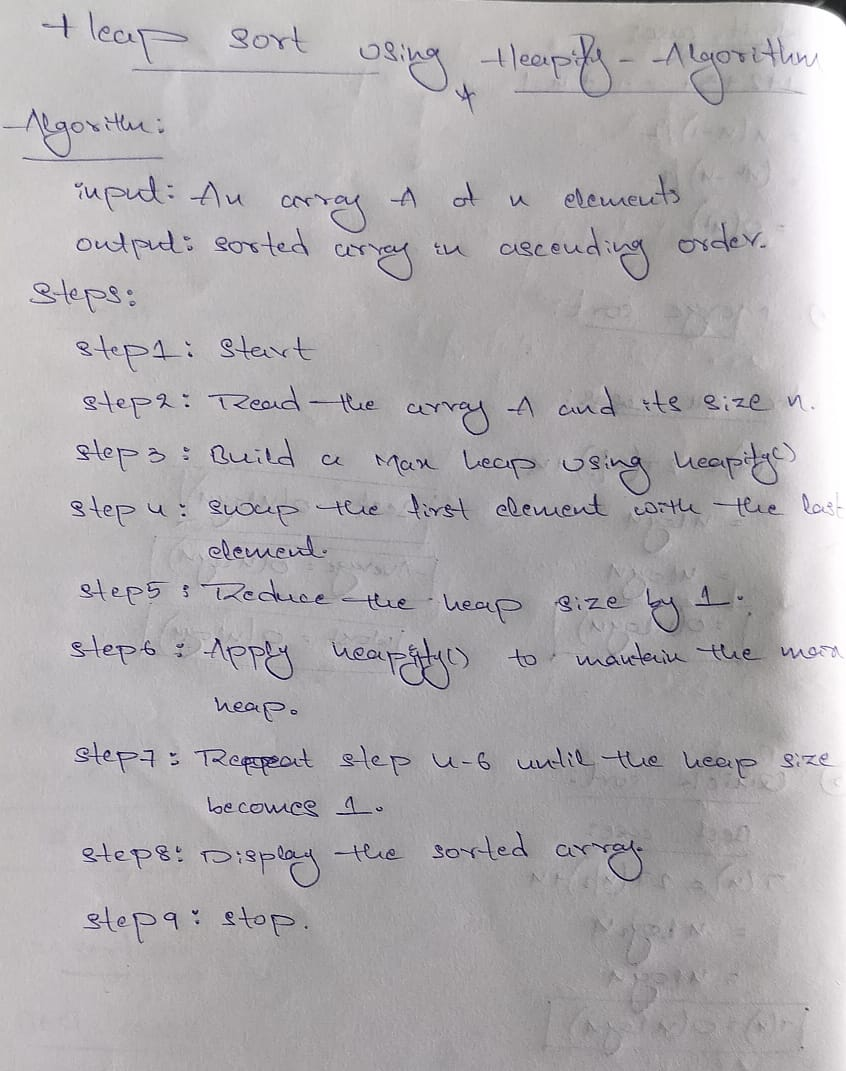 Heap sort using Heapify-Algorithm
Algorithm:
input: An array A of n elements
output: sorted array in ascending order.
Steps:
step1: Start
step2: Read the array A and its size n.
step3: Build a Max heap using heapify()
step4: swap the first element with the last
element.
step5: Reduce the heap size by 1.
step6: Apply heapify() to mantain the max
heap.
step7: Repeat step 4-6 until the heap size
becomes 1.
step8: Display the sorted array.
step9: stop.